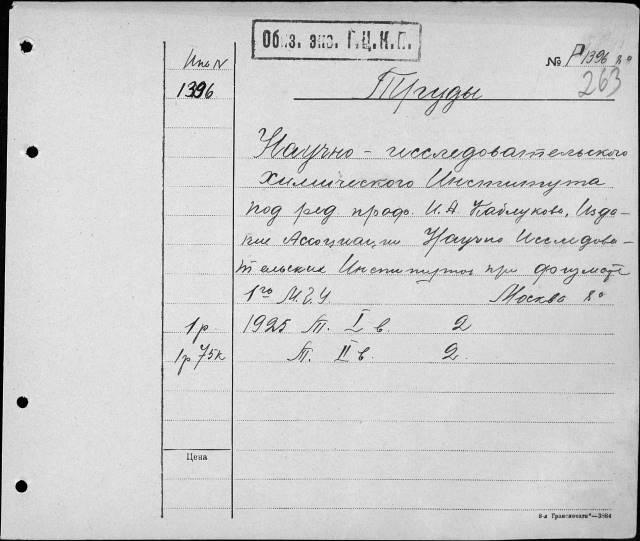 Обяз. экз. Г.Ц.К.П.
Инв N
№ Р1396 8°
263
1396
Труды
Научно-исследовательского
Химического Института
под ред. проф. И. А. Каблукова, Изда-
ние Ассоциации Научно Исследова-
тельских Институтов при физмате
1го М.Г.У Москва 8°
1р. 1925 т. I в. 2
1р 75к т. II в. 2
Цена